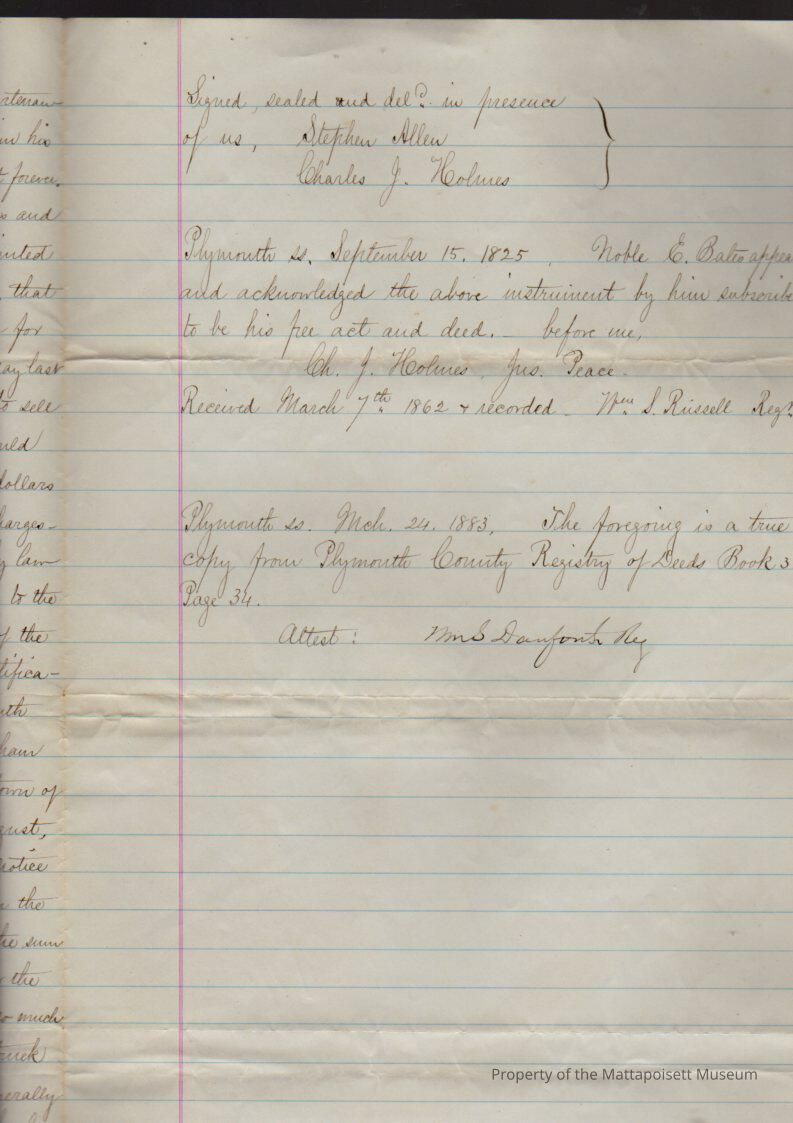 Signed, sealed and deld. in presence
of us, Stephen Allen
Charles J. Holmes
Plymouth ss. September 15. 1825. Noble E. Bates appea
and acknowledged the above instrument by him subscribe
to be his free act and deed. — before me,
Ch. J. Holmes, Jus. Peace.
Received March 7th 1862 & recorded. Wm. S. Russell Regr.
Plymouth ss. Mch. 24. 1883. The foregoing is a true
copy from Plymouth County Registry of Deeds Book 3
Page 34.
Attest: Wm S Danforth Reg
in his
forever.
and
that
for
ay last
to sell
dollars
harges-
y law
to the
of the
tifica-
ham
own of
gust,
notice
the
he sum
the
so much
erally
Property of the Mattapoisett Museum